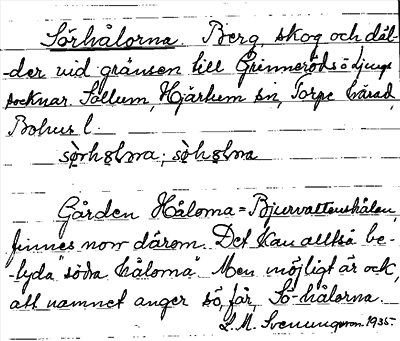 Sörhålorna. Berg, skog och däl-
-der vid gränsen till Grinneröds o Ljungs
socknar. Sollum, Hjärtum sn, Torpe härad,
Bohus l.
Gården Hålorna = Bjurvattenshålan,
finnes norr därom. Det kan alltså be-
-tyda "södra hålorna". Men möjligt är ock,
att namnet anger sö, får, Sö-hålorna.
L. M. Svenungsson 1935.